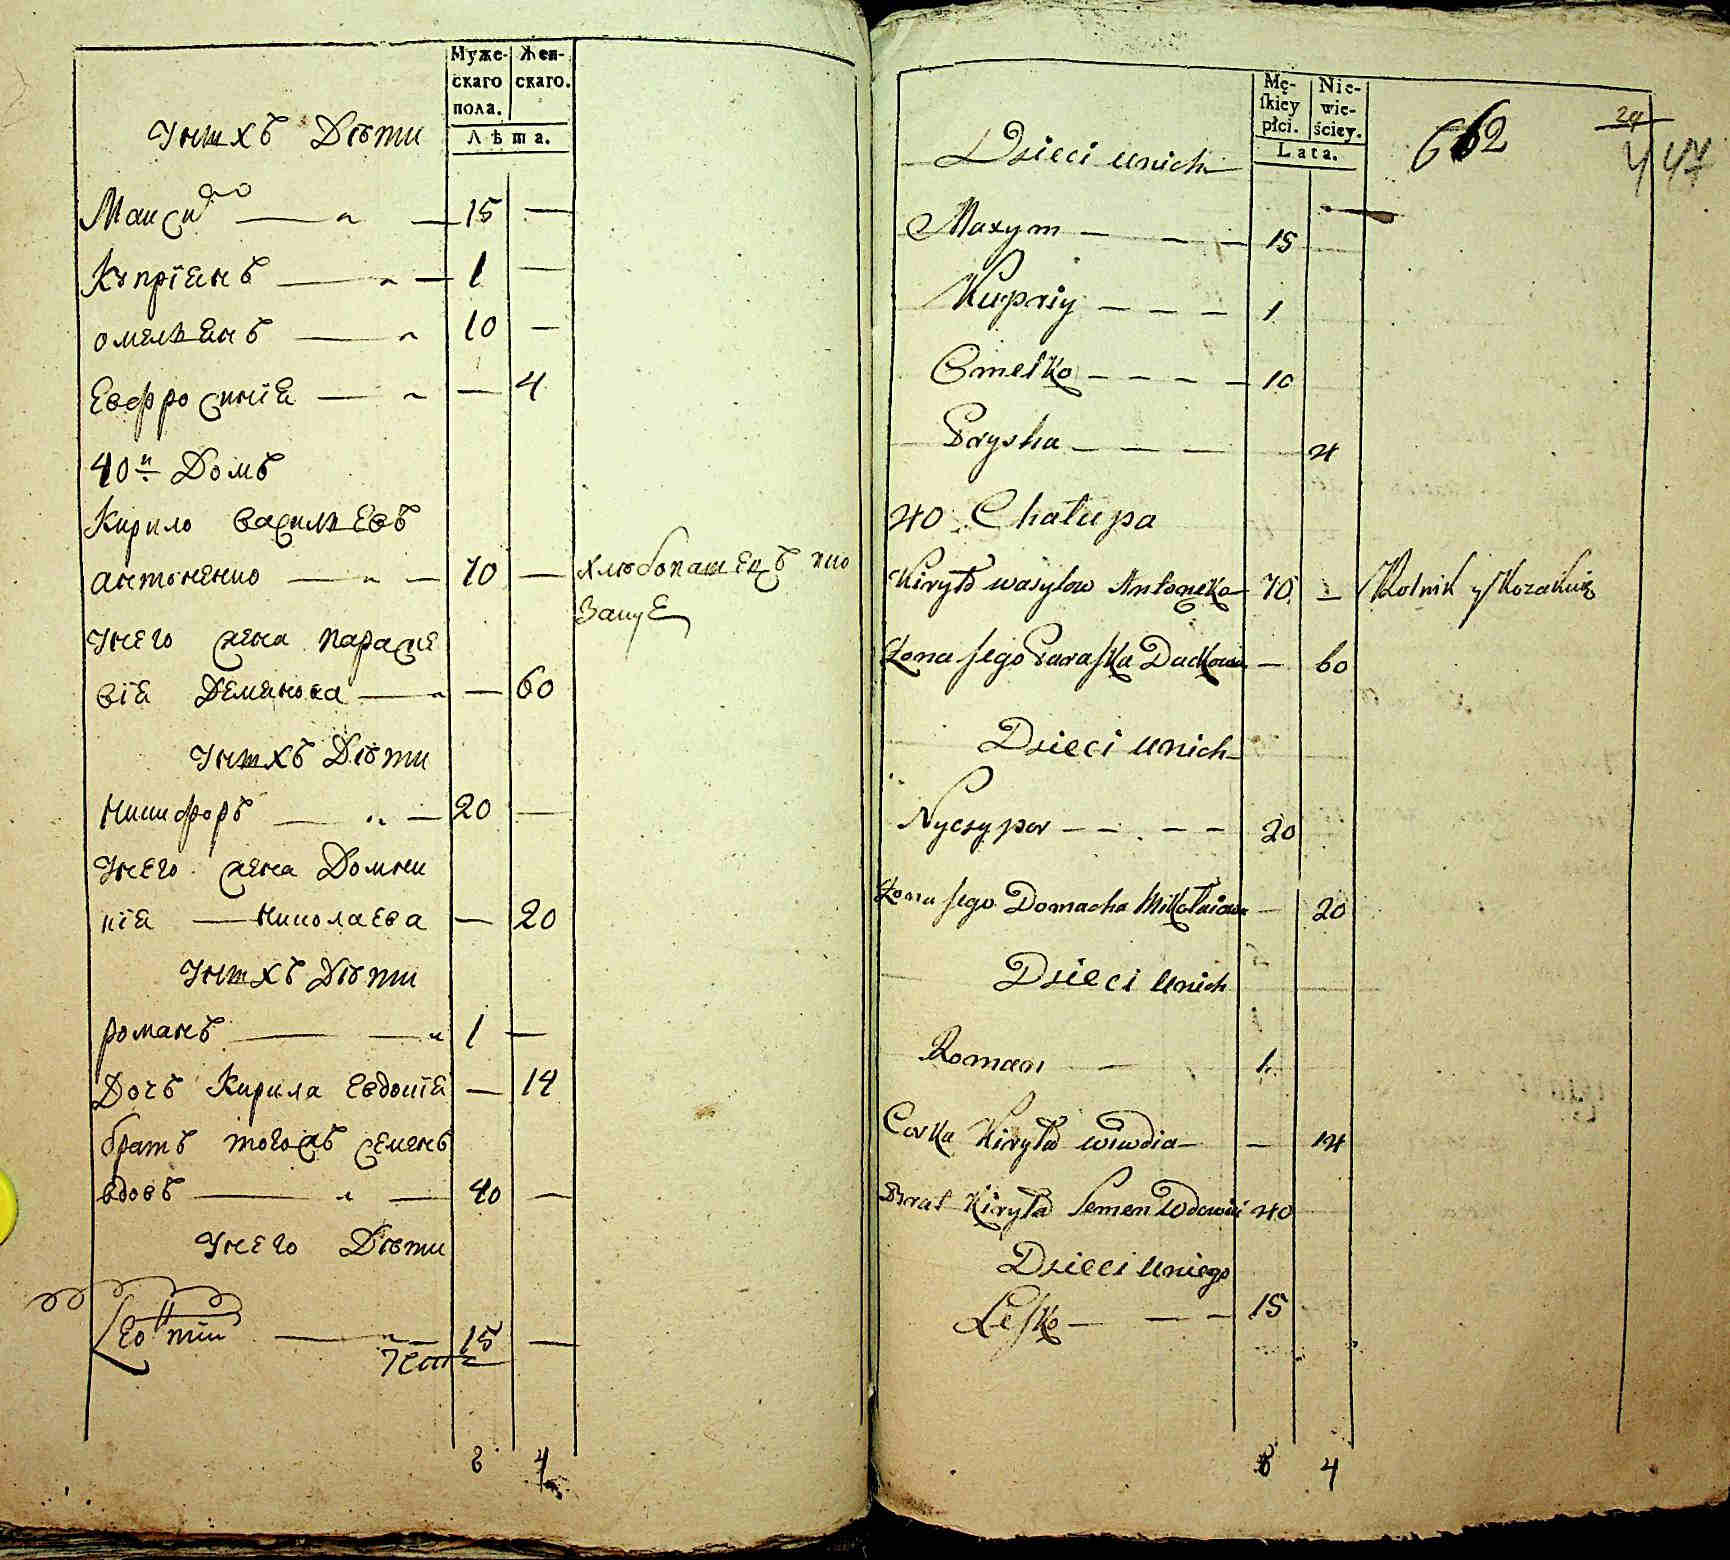 Муже-
скаго
пола.
Жен-
скаго.
Лѣта.
Унихъ Дѣти
Максим — 15 —
Купріанъ — 1 —
омелянъ — 10 —
Евфросиніа — — 4
40й Домъ
Кирило василіевъ
антоненко — 70 — хлѣбопашецъ ико
Заку
Унего жена параске
віа Деманова — — 60
Унихъ Дѣти
Никифоръ — 20 —
Унего жена Домни
кіа — Николаева — 20
Унихъ Дѣти
романъ — 1 —
Дочь Кирила Евдокіа — 14
братъ тогожъ семенъ
вдовъ — 40 —
Унего Дѣти
Леонтій — 15 —
8 4
Mę-
ſkiey
płci.
Nie-
wie-
ściey.
Lata.
662
24
47
Dzieci unich
Maxym — — — 15
Kupriy — — — 1
Omelko — — — — 10
Prysha — — — 4
40 Chałupa
Kiryło wasylow Antonęko 70 — Rolnik y Kozakuię
Żona Jego Paraſka Dackowa — 60
Dzieci unich
Nyczypor — — — — 20
Żona Jego Domacha Mikołaiowa — 20
Dzieci unich
Roman — 1
Corka Kiryła wiwdia — — 14
Brat Kiryła Semen Wdowiec 40
Dzieci uniego
Leſko — — — 15
8 4